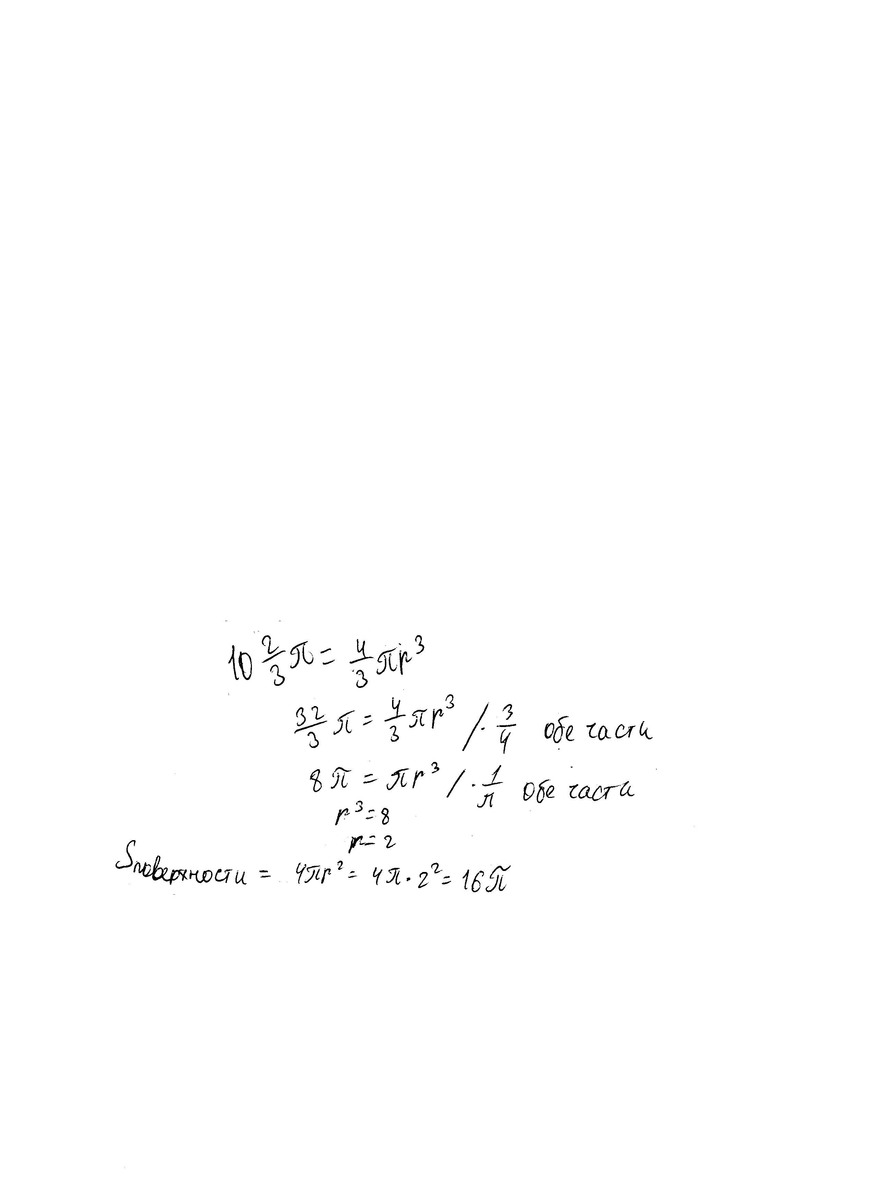 10 2/3 π = 4/3 πr³
32/3 π = 4/3 πr³ / · 3/4 обе части
8π = πr³ / · 1/π обе части
r³=8
r=2
Sповерхности = 4πr² = 4π · 2² = 16π